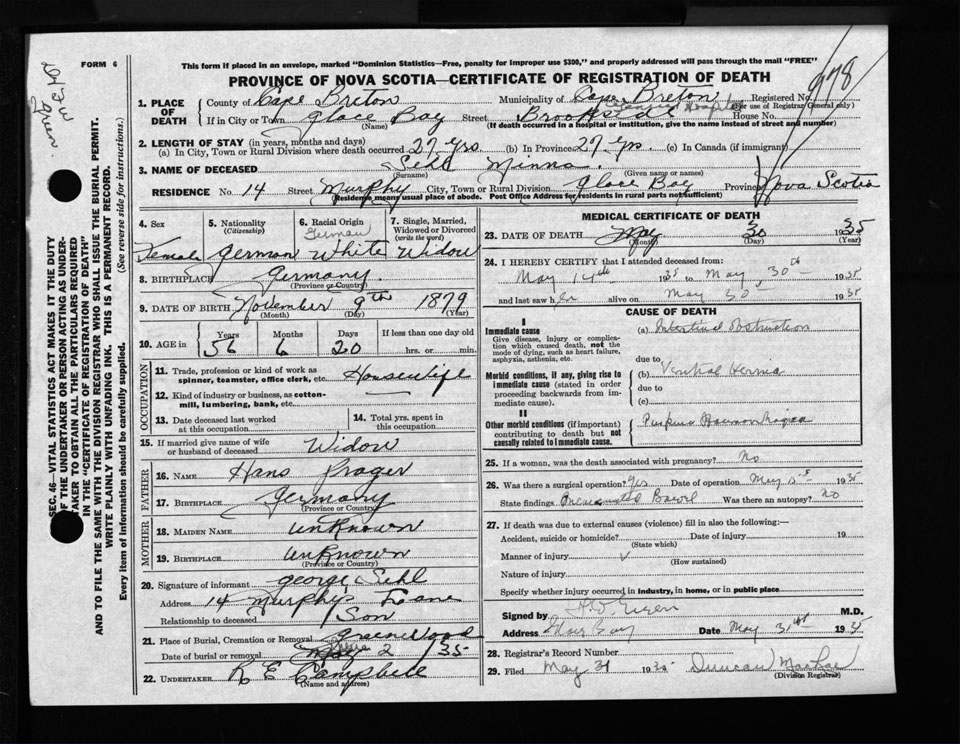 FORM 6
This form if placed in an envelope, marked "Dominion Statistics—Free, penalty for improper use $300," and properly addressed will pass through the mail "FREE"
PROVINCE OF NOVA SCOTIA—CERTIFICATE OF REGISTRATION OF DEATH
978
1. PLACE OF DEATH
County of Cape Breton Municipality of Cape Breton Registered No.
(For use of Registrar General only)
If in City or Town Glace Bay Street Brookside House No.
(Name) (If death occurred in a hospital or institution, give the name instead of street and number)
2. LENGTH OF STAY (in years, months and days)
(a) In City, Town or Rural Division where death occurred 27 yrs. (b) In Province 27 yrs. (c) In Canada (if immigrant)
3. NAME OF DECEASED Sehl Minna
(Surname) (Given name or names)
RESIDENCE No. 14 Street Murphy City, Town or Rural Division Glace Bay Province Nova Scotia
(Residence means usual place of abode. Post Office Address for residents in rural parts not sufficient)
4. Sex Female
5. Nationality (Citizenship) German
6. Racial Origin German White
7. Single, Married, Widowed or Divorced (write the word) Widow
8. BIRTHPLACE Germany
(Province or Country)
9. DATE OF BIRTH November 9th 1879
(Month) (Day) (Year)
10. AGE in Years 56 Months 6 Days 20 If less than one day old hrs. or min.
OCCUPATION
11. Trade, profession or kind of work as spinner, teamster, office clerk, etc. Housewife
12. Kind of industry or business, as cotton-mill, lumbering, bank, etc. —
13. Date deceased last worked at this occupation
14. Total yrs. spent in this occupation
15. If married give name of wife or husband of deceased Widow
FATHER
16. NAME Hans Prager
17. BIRTHPLACE Germany
(Province or Country)
MOTHER
18. MAIDEN NAME unKnown
19. BIRTHPLACE unKnown
(Province or Country)
20. Signature of informant George Sehl
Address 14 Murphys Lane
Relationship to deceased Son
21. Place of Burial, Cremation or Removal Greenwood
Date of burial or removal June 2 /35
22. UNDERTAKER R E Campbell
(Name and address)
MEDICAL CERTIFICATE OF DEATH
23. DATE OF DEATH May 30 1935
(Month) (Day) (Year)
24. I HEREBY CERTIFY that I attended deceased from:
May 14th 1935 to May 30th 1935
and last saw her alive on May 30 1935
CAUSE OF DEATH
I
Immediate cause
Give disease, injury or complication which caused death, not the mode of dying, such as heart failure, asphyxia, asthenia, etc.
(a) Intestinal Obstruction
due to
Morbid conditions, if any, giving rise to immediate cause (stated in order proceeding backwards from immediate cause).
(b) Ventral Hernia
due to
(c)
II
Other morbid conditions (if important) contributing to death but not causally related to immediate cause.
25. If a woman, was the death associated with pregnancy? No
26. Was there a surgical operation? Yes Date of operation May 15 1935
State findings Bowel Was there an autopsy? No
27. If death was due to external causes (violence) fill in also the following:—
Accident, suicide or homicide? Date of injury 19
(State which)
Manner of injury
(How sustained)
Nature of injury
Specify whether injury occurred in industry, in home, or in public place
Signed by M.D.
Address Glace Bay Date May 31st 1935
28. Registrar's Record Number
29. Filed May 31 1935 Duncan MacRae
(Division Registrar)
SEC. 46—VITAL STATISTICS ACT MAKES IT THE DUTY
OF THE UNDERTAKER OR PERSON ACTING AS UNDER-
TAKER TO OBTAIN ALL THE PARTICULARS REQUIRED
IN THE "CERTIFICATE OF REGISTRATION OF DEATH"
AND TO FILE THE SAME WITH THE DIVISION REGISTRAR WHO SHALL ISSUE THE BURIAL PERMIT.
WRITE PLAINLY WITH UNFADING INK. THIS IS A PERMANENT RECORD.
Every item of information should be carefully supplied. (See reverse side for instructions.)